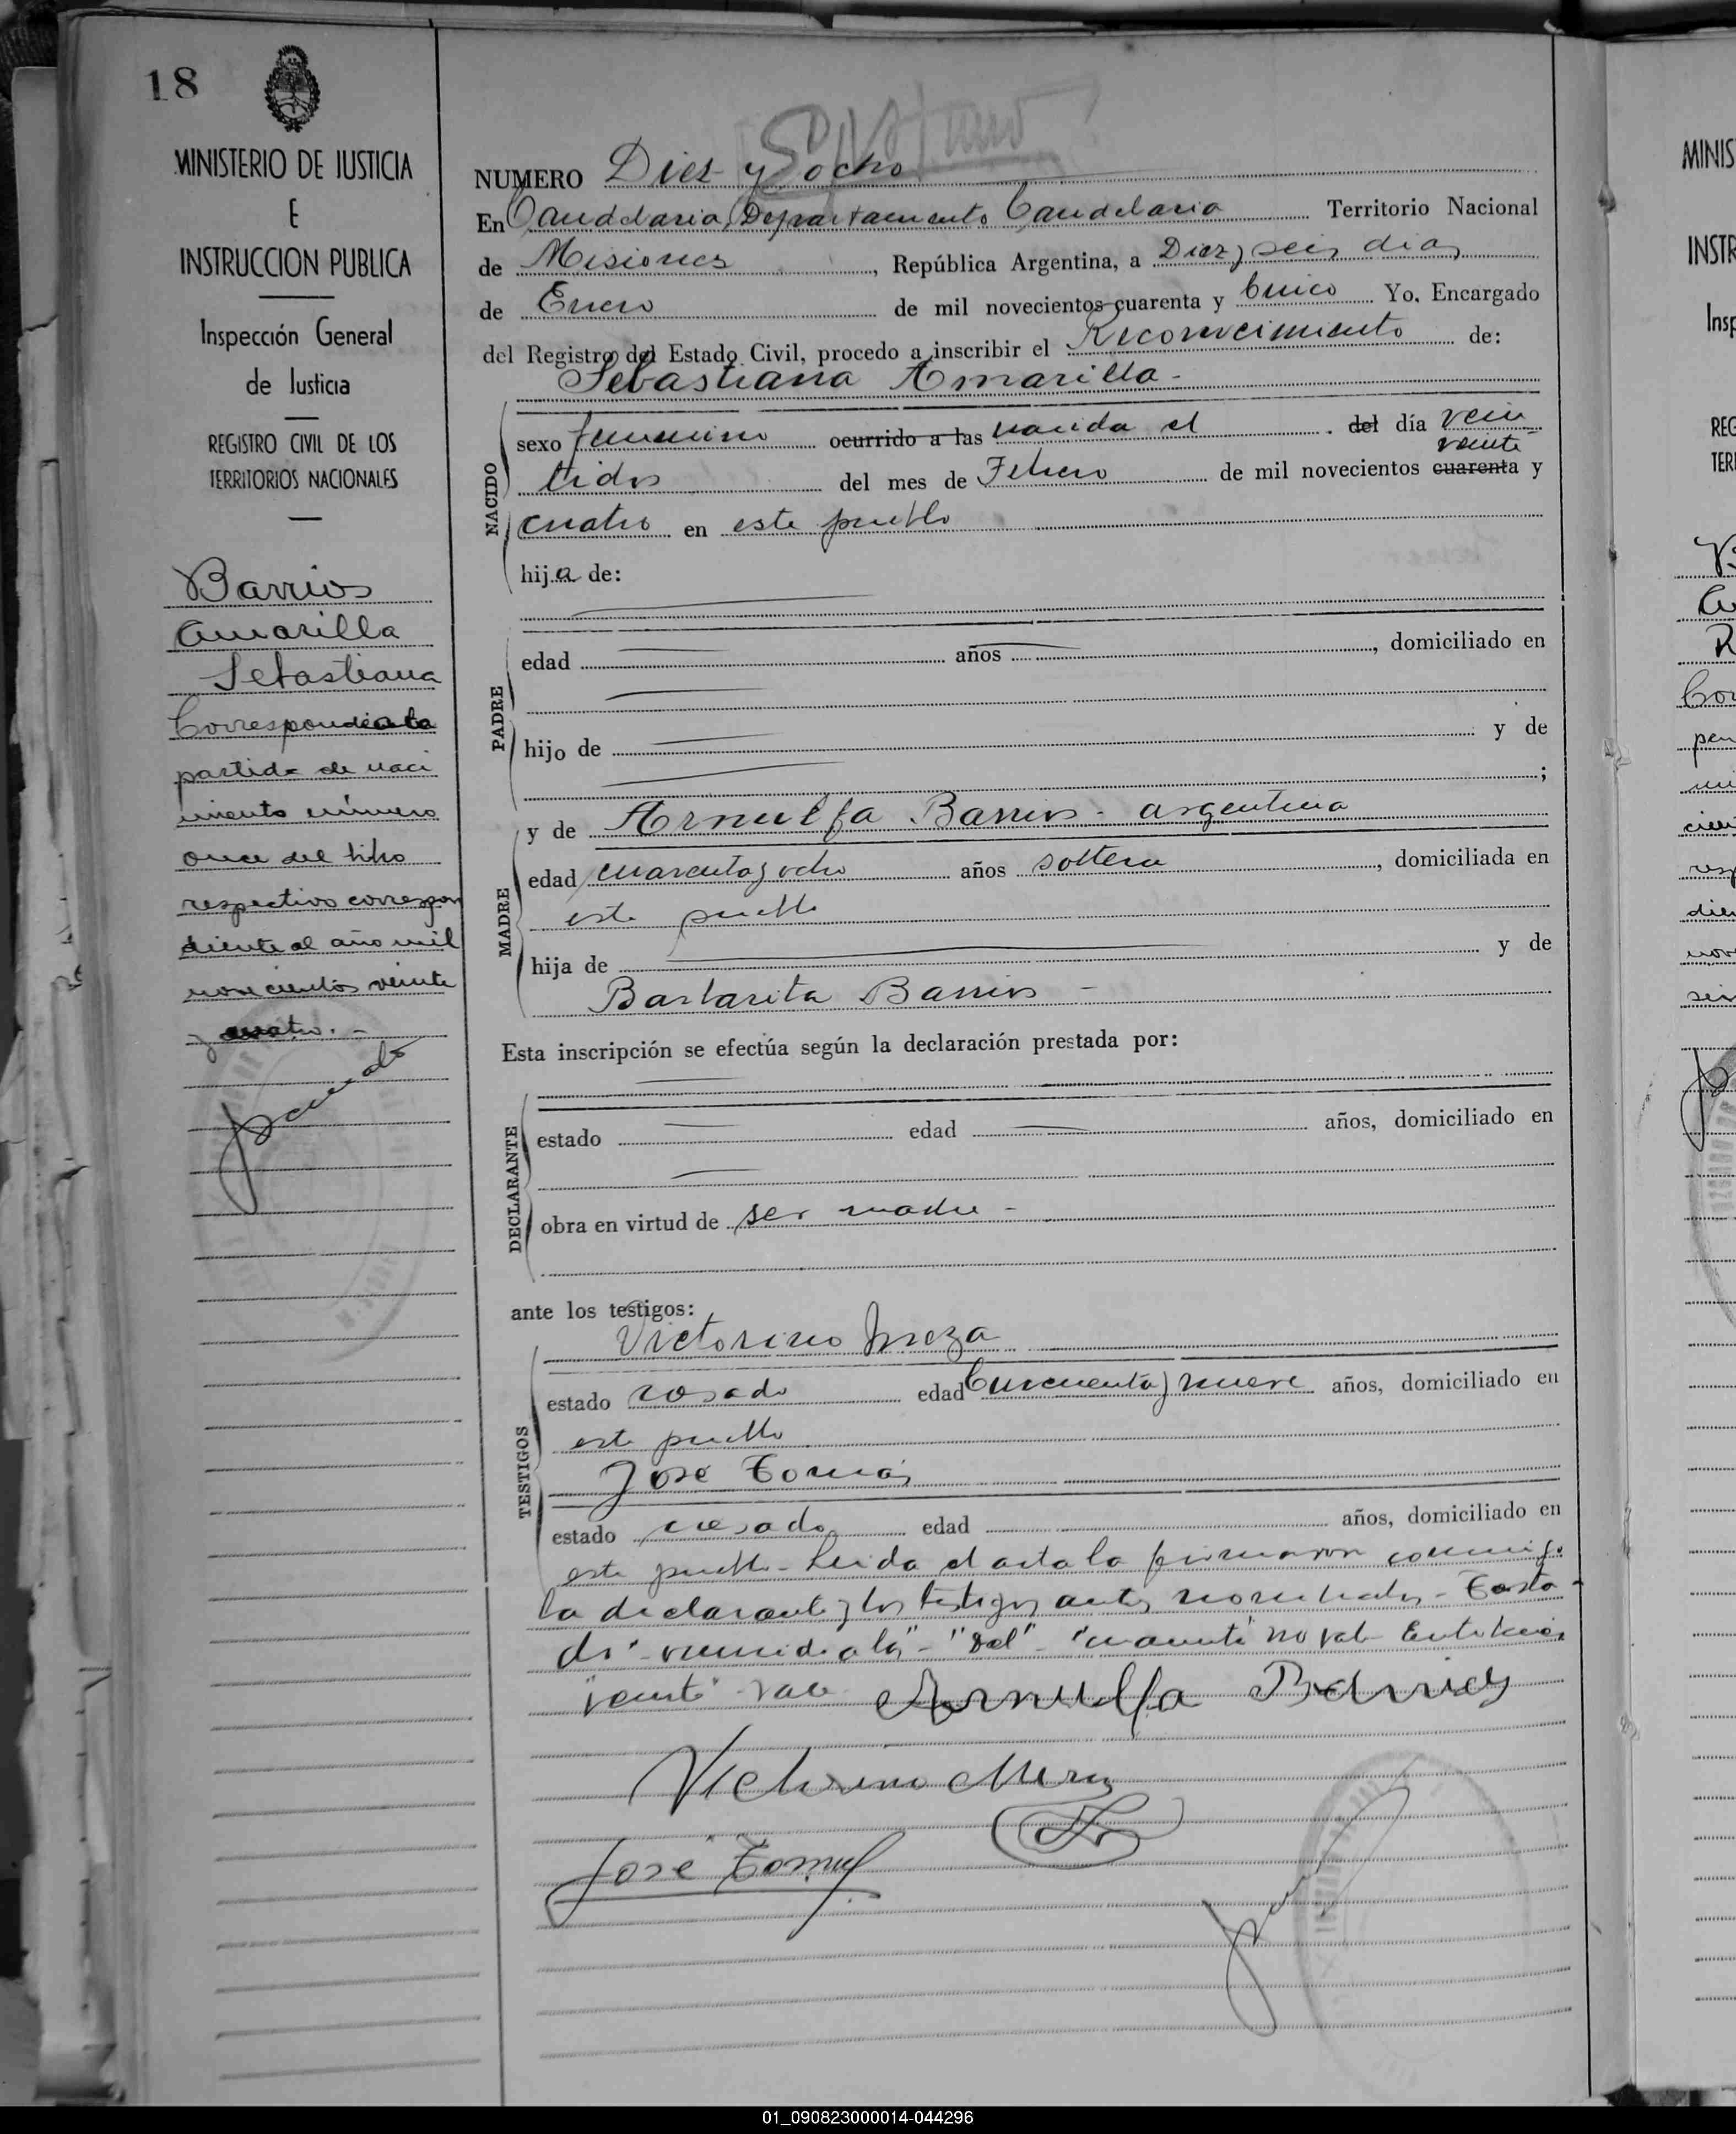 18
MINISTERIO DE JUSTICIA
E
INSTRUCCION PUBLICA
Inspección General
de Justicia
REGISTRO CIVIL DE LOS
TERRITORIOS NACIONALES
Barrios
Amarilla
Sebastiana
Corresponde a la
partida de naci
miento número
once del libro
respectivo correspon
diente al año mil
novecientos veinte
y cuatro. -
NUMERO Diez y ocho
En Canddaria, Departamento Candelaria Territorio Nacional
de Misiones, República Argentina, a Diez y seis dias
de Enero de mil novecientos cuarenta y Cinco Yo, Encargado
del Registro del Estado Civil, procedo a inscribir el Reconocimiento de:
Sebastiana Amarilla -
NACIDO
sexo femenino ocurrido a las nacida el del día vein
veinte
tidos del mes de Febrero de mil novecientos cuarenta y
cuatro en este pueblo
hija de:
PADRE
edad años, domiciliado en
hijo de y de
;
MADRE
y de Arnulfa Barrios - argentina
edad cuarenta y ocho años soltera, domiciliada en
este pueblo
hija de y de
Barbarita Barrios -
Esta inscripción se efectúa según la declaración prestada por:
DECLARANTE
estado edad años, domiciliado en
obra en virtud de ser madre -
ante los testigos:
TESTIGOS
Victorino Meza
estado casado edad Cincuenta y nueve años, domiciliado en
este pueblo
José Tomás
estado casado edad años, domiciliado en
este pueblo - Leida el acta la firmaron conmigo
la declarante y los testigos antes nombrados - Testa -
do "ocurrido a las" - "del" - "cuarenta" no vale Entre lineas
"veinte" vale Arnulfa Barrios
Victorino Meza
José Tomás
MINIS
INSTR
Insp
REG
TERI
01_090823000014-044296